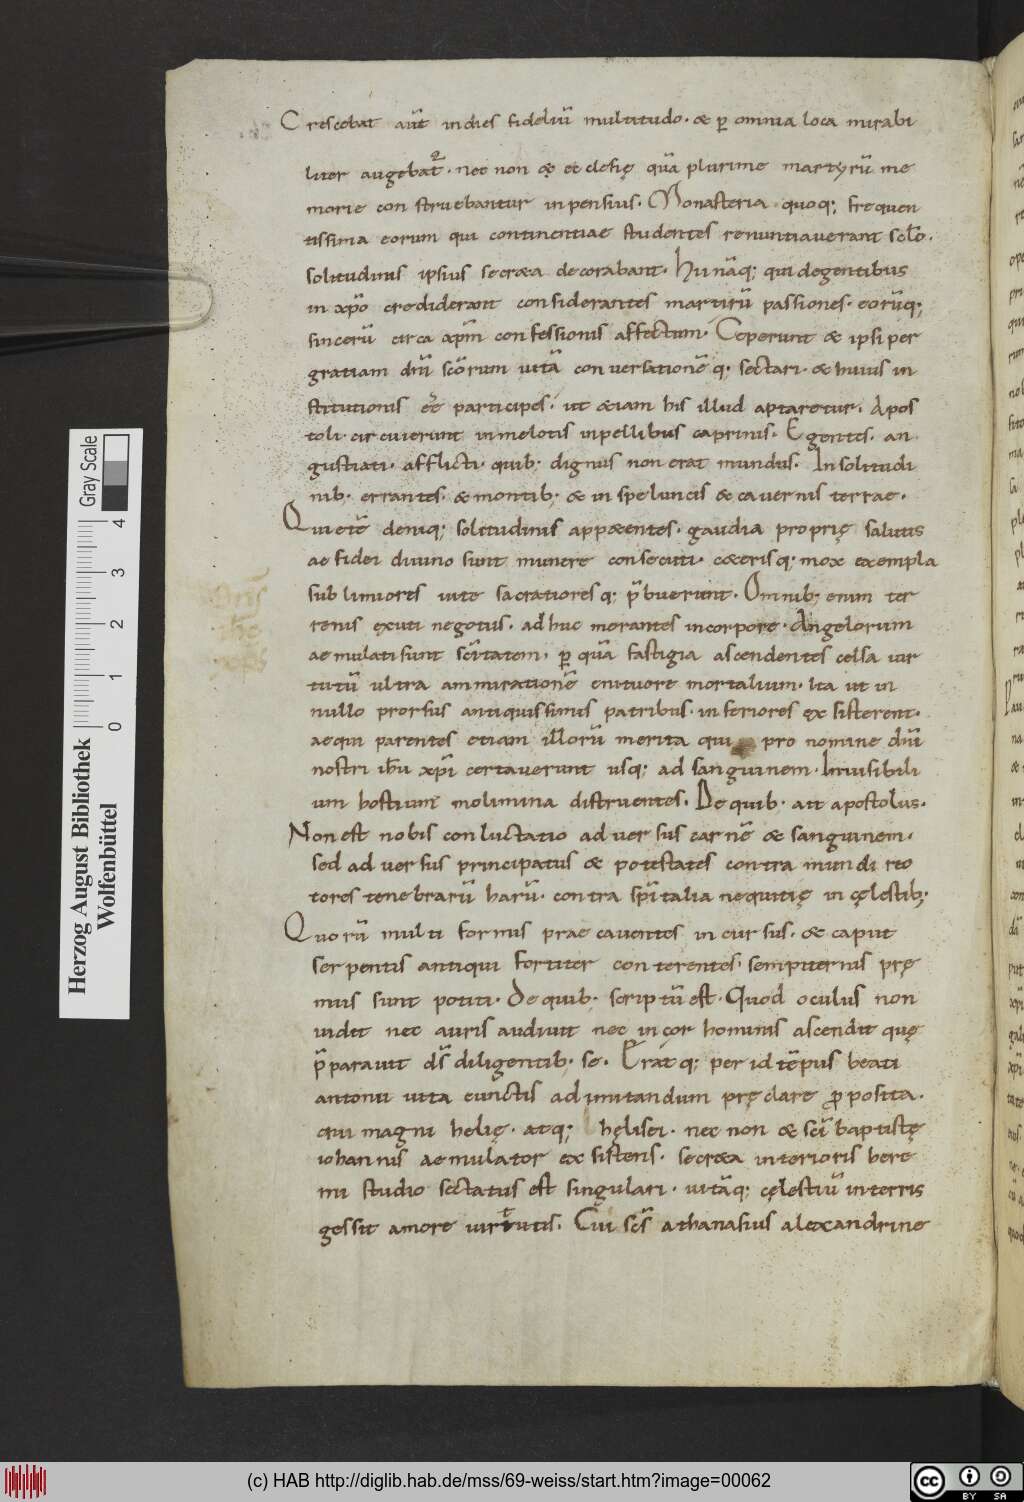 Crescebat aut̄ indies fideliū multitudo· & ꝑ omnia loca mirabi
liter augebat᷑· nec non & ecclesię quā plurime martyrū me
morie construebantur inpensius· Monasteria quoq; frequen
tissima eorum qui continentiae studentes renuntiauerant sclō·
solitudinis ipsius secraea decorabant· Hi nāq; qui degentibus
in xp̄o crediderant considerantes martirū passiones· eorūq;
sincerū circa xp̄m confessionis affectum· Ceperunt & ipsi per
gratiam dn̄i scōrum uitā conuersationēq· sectari· & huius in
stitutionis eē participes· ut &iam his illud aptaretur· Apos
toli· circuierunt inmelotis inpellibus caprinis· Egentes· an
gustiati· afflicti· quib; dignus non erat mundus· In solitudi
nib· errantes· & montib; & in speluncis & cauernis terrae·
Quietē deniq; solitudinis app&entes· gaudia proprię salutis
ac fidei diuino sunt munere consecuti· c&erisq; mox exempla
sublimiores uite sacratioresq; p̄buerunt· Omnib; enim ter
renis exuti negotiis· adhuc morantes incorpore· Angelorum
aemulati sunt scītatem· ꝑ quā fastigia ascendentes celsa uir
tutū ultra ammirationē enituere mortalium· Ita ut in
nullo prorsus antiquissimis patribus· inferiores existerent·
aequiparentes etiam illorū merita qui pro nomine dn̄i
nostri ih̄u xp̄i certauerunt usq; ad sanguinem· Inuisibili
um hostium molimina distruentes· De quib· ait apostolus·
Non est nobis conluctatio aduersus carnē & sanguinem·
sed aduersus principatus & potestates contra mundi rec
tores tenebrarū harū· contra sp̄italia nequitię in cęlestib;
Quorū multi formis praecauentes incursus· & caput
serpentis antiqui fortiter conterentes· sempiternis prę
miis sunt potiti· De quib· scriptū est· Quod oculus non
uidit nec auris audiuit nec in cor hominis ascendit quę
p̄parauit ds̄ diligentib; se· Erat q; per id tēpus beati
antonii uita cunctis ad imitandum pręclare ꝓposita·
qui magni helię· atq; hęlisei· nec non & scī baptistę
iohannis aemulator existens· secr&a interioris here
mi studio sectatus est singulari· uitāq; cęlestiū in terris
gessit amore uirtutis· Cui scs̄ athanasius alexandrine
Herzog August Bibliothek
Wolfenbüttel
0 1 2 3 4
Gray Scale
(c) HAB http://diglib.hab.de/mss/69-weiss/start.htm?image=00062
cc BY SA